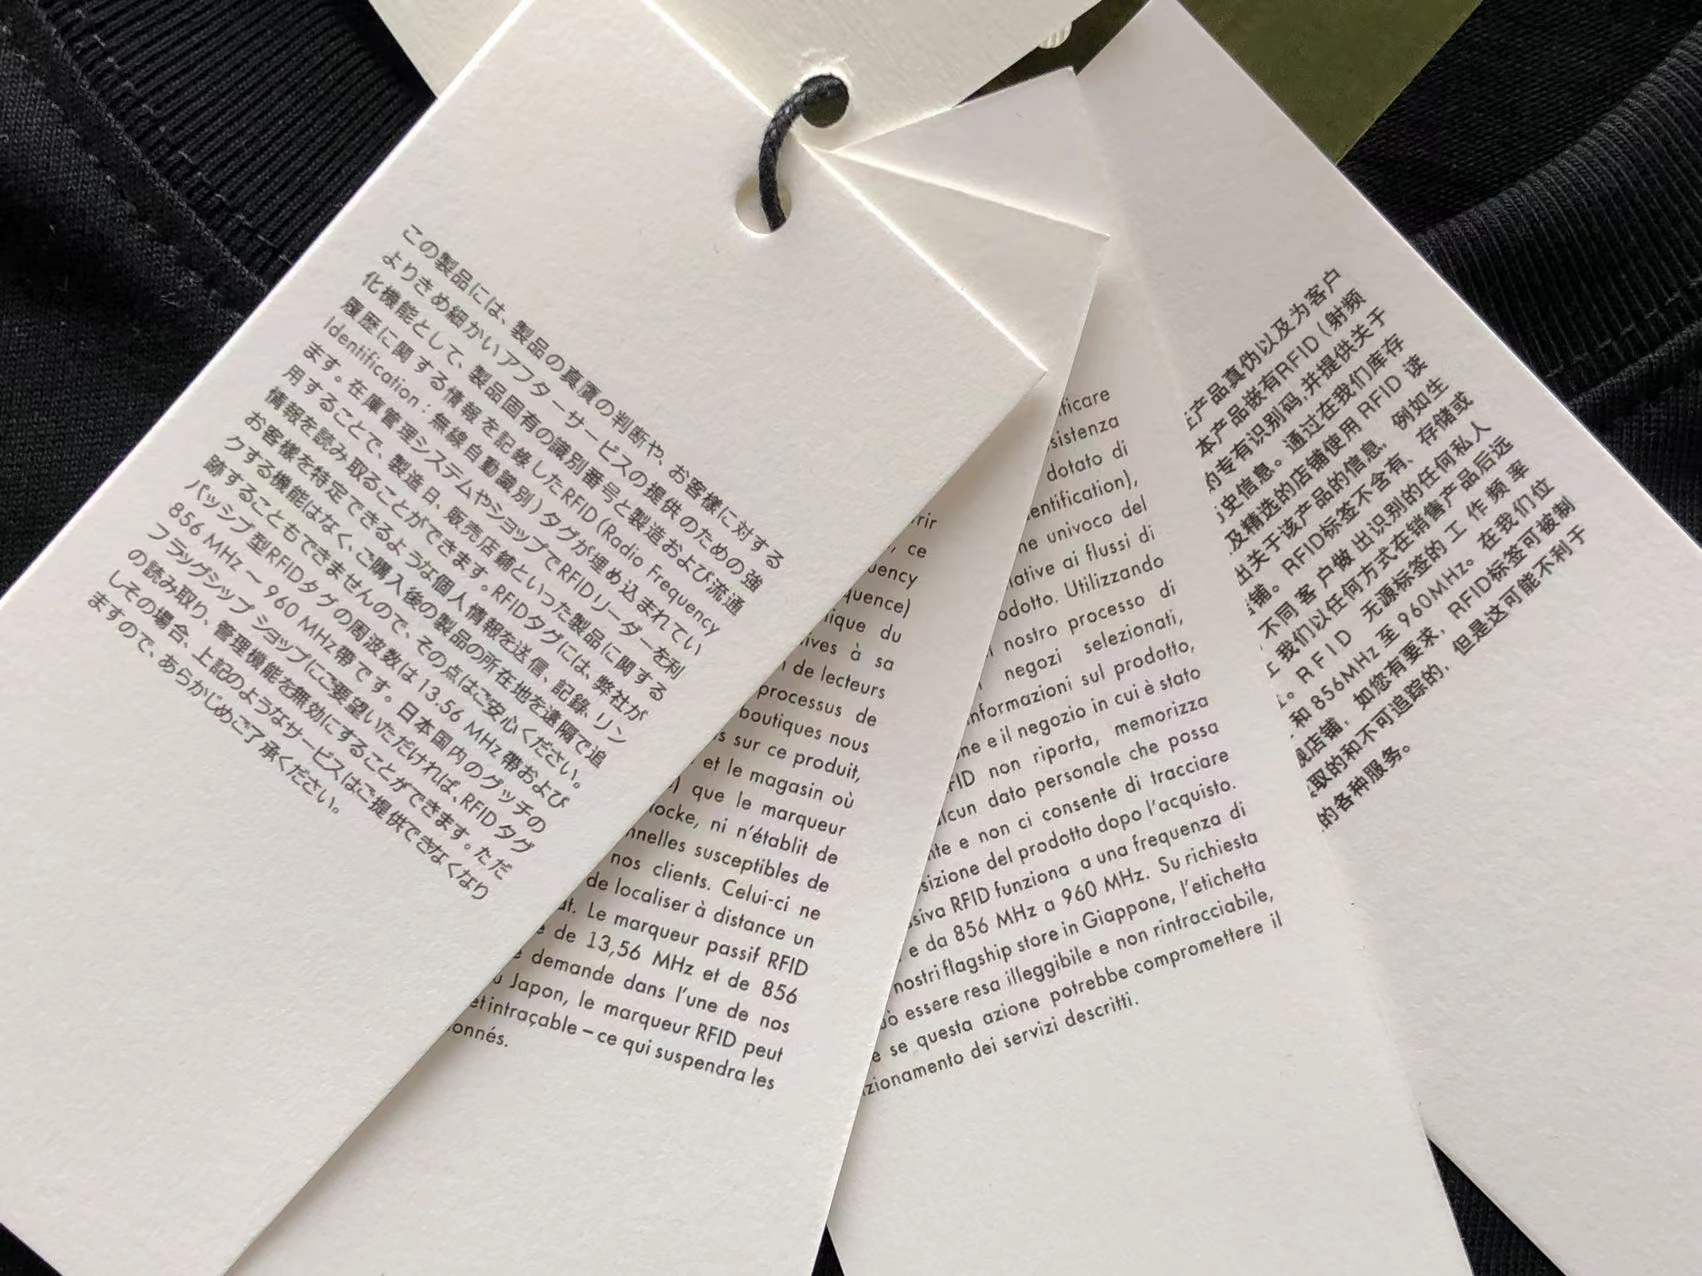 この製品には、製品の真贋の判断や、お客様に対する
よりきめ細かいアフターサービスの提供のための強
化機能として、製品固有の識別番号と製造および流通
履歴に関する情報を記録したRFID(Radio Frequency
Identification:無線自動識別)タグが埋め込まれてい
ます。在庫管理システムやショップでRFIDリーダーを利
用することで、製造日、販売店舗といった製品に関する
情報を読み取ることができます。RFIDタグには、弊社が
お客様を特定できるような個人情報を送信、記録、リン
クする機能はなく、ご購入後の製品の所在地を遠隔で追
跡することもできませんので、その点はご安心ください。
パッシブ型RFIDタグの周波数は13.56 MHz帯および
856 MHz ~ 960 MHz帯です。日本国内のグッチの
フラッグシップ ショップにご要望いただければ、RFIDタグ
の読み取り、管理機能を無効にすることができます。ただ
しその場合、上記のようなサービスはご提供できなくなり
ますので、あらかじめご了承ください。
, ce
de lecteurs
processus de
boutiques nous
sur ce produit,
et le magasin où
que le marqueur
ni n'établit de
susceptibles de
nos clients. Celui-ci ne
de localiser à distance un
Le marqueur passif RFID
de 13,56 MHz et de 856
demande dans l'une de nos
Japon, le marqueur RFID peut
et intraçable – ce qui suspendra les
dotato di
univoco del
ai flussi di
Utilizzando
nostro processo di
negozi selezionati,
sul prodotto,
e il negozio in cui è stato
non riporta, memorizza
dato personale che possa
e non ci consente di tracciare
del prodotto dopo l'acquisto.
RFID funziona a una frequenza di
e da 856 MHz a 960 MHz. Su richiesta
nostri flagship store in Giappone, l'etichetta
essere resa illeggibile e non rintracciabile,
se questa azione potrebbe compromettere il
dei servizi descritti.
产品真伪以及为客户
本产品嵌有RFID(射频
专有识别码,并提供关于
史信息。通过在我们库存
及精选的店铺使用 RFID 读
出关于该产品的信息，例如生
铺。RFID标签不含有、存储或
不同客户做出识别的任何私人
我们以任何方式在销售产品后远
。RFID 无源标签的工作频率
和 856MHz 至 960MHz。在我们位
店铺，如您有要求，RFID标签可被制
取的和不可追踪的，但是这可能不利于
的各种服务。